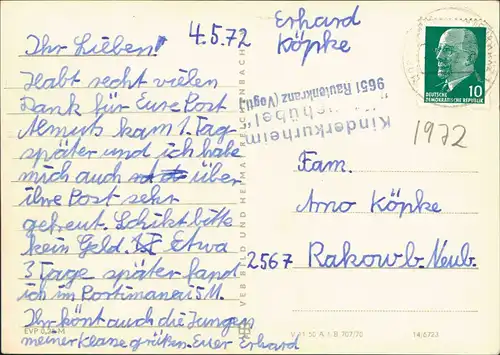 4.5.72
Erhard
Köpke
Ihr Lieben!
Habt recht vielen
Dank für Eure Post
Almuts kam 1. Tag
später und ich habe
mich auch über
ihre Post sehr
gefreut. Schikt bitte
kein Geld. Etwa
3 Tage später fand
ich im Portimanai 5M.
Ihr könt auch die Jungen
meiner Klasse grüßen. Euer Erhard
Kinderkurheim
9651 Rautenkranz (Vogtl.)
10
DEUTSCHE
DEMOKRATISCHE REPUBLIK
1972
Fam.
Arno Köpke
2567 Rakow b. Neub.
VEB BILD UND HEIMAT REICHENBACH
EVP 0,20 M
707/70
14/6723